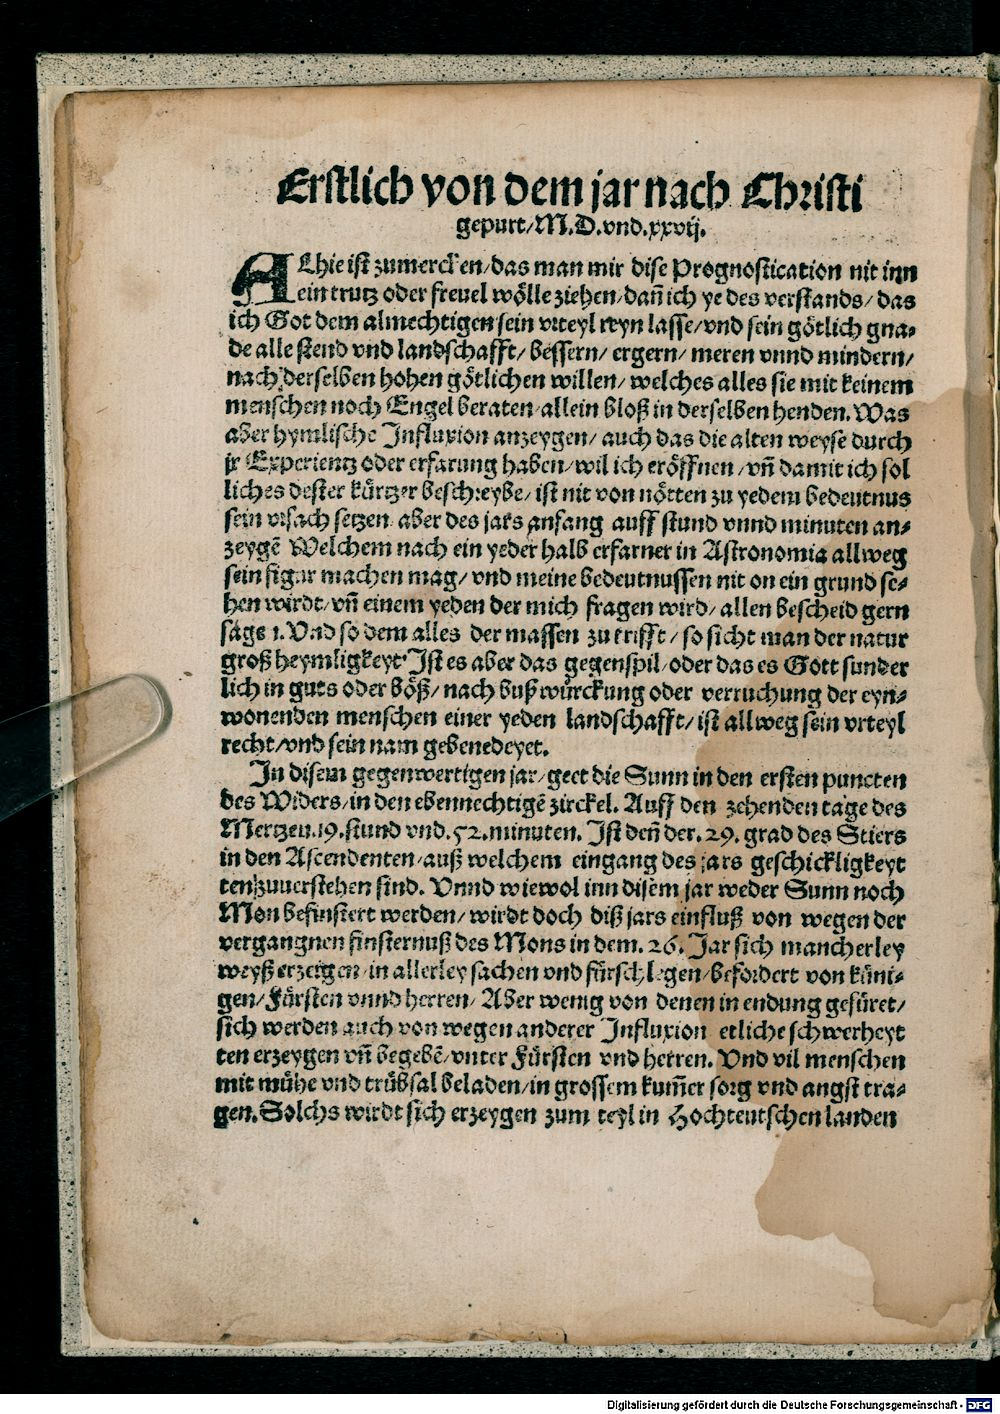 Erstlich von dem jar nach Christi
gepurt/M.D.vnd.xxvij.
ALhie ist zumercken/das man mir dise Prognostication nit inn
ein trutz oder freuel wölle ziehen/dañ ich ye des verstands/das
ich Got dem almechtigen sein vrteyl reyn lasse/vnd sein götlich gna-
de alle stend vnd landschafft/bessern/ergern/meren vnnd mindern/
nach derselben hohen götlichen willen/welches alles sie mit keinem
menschen noch Engel beraten allein bloß in derselben henden. Was
aber hymlische Influxion anzeygen/auch das die alten weyse durch
jr Experientz oder erfarung haben/wil ich eröffnen/vñ damit ich sol
liches dester kürtzer beschreybe/ist nit von nötten zu yedem bedeutnus
sein vrsach setzen aber des jars anfang auff stund vnnd minuten an-
zeygẽ Welchem nach ein yeder halb erfarner in Astronomia allweg
sein figur machen mag/vnd meine bedeutnussen nit on ein grund se-
hen wirdt/vñ einem yeden der mich fragen wird/allen bescheid gern
sagen. Vnd so dem alles der massen zu trifft/so sicht man der natur
groß heymligkeyt Ist es aber das gegenspil/oder das es Gott sunder
lich in guts oder böß/nach buß würckung oder verruchung der eyn-
wonenden menschen einer yeden landschafft/ist allweg sein vrteyl
recht/vnd sein nam gebenedeyet.
In disem gegenwertigen jar/geet die Sunn in den ersten puncten
des Widers/in den ebennechtigẽ zirckel. Auff den zehenden tage des
Mertzen.19.stund vnd.52.minuten. Ist deñ der.29.grad des Stiers
in den Ascendenten/auß welchem eingang des jars geschickligkeyt
ten zuuerstehen sind. Vnnd wiewol inn disem jar weder Sunn noch
Mon befinstert werden/wirdt doch diß jars einfluß von wegen der
vergangnen finsternuß des Mons in dem.26.Jar sich mancherley
weyß erzeigen/in allerley sachen vnd fürschlegen/befordert von küni-
gen/Fürsten vnnd herren/Aber wenig von denen in endung gefüret/
sich werden auch von wegen anderer Influxion etliche schwerheyt
ten erzeygen vñ begebẽ/vnter Fürsten vnd herren. Vnd vil menschen
mit mühe vnd trübsal beladen/in grossem kum̃er sorg vnd angst tra-
gen. Solchs wirdt sich erzeygen zum teyl in Hochteutschen landen
Digitalisierung gefördert durch die Deutsche Forschungsgemeinschaft - DFG